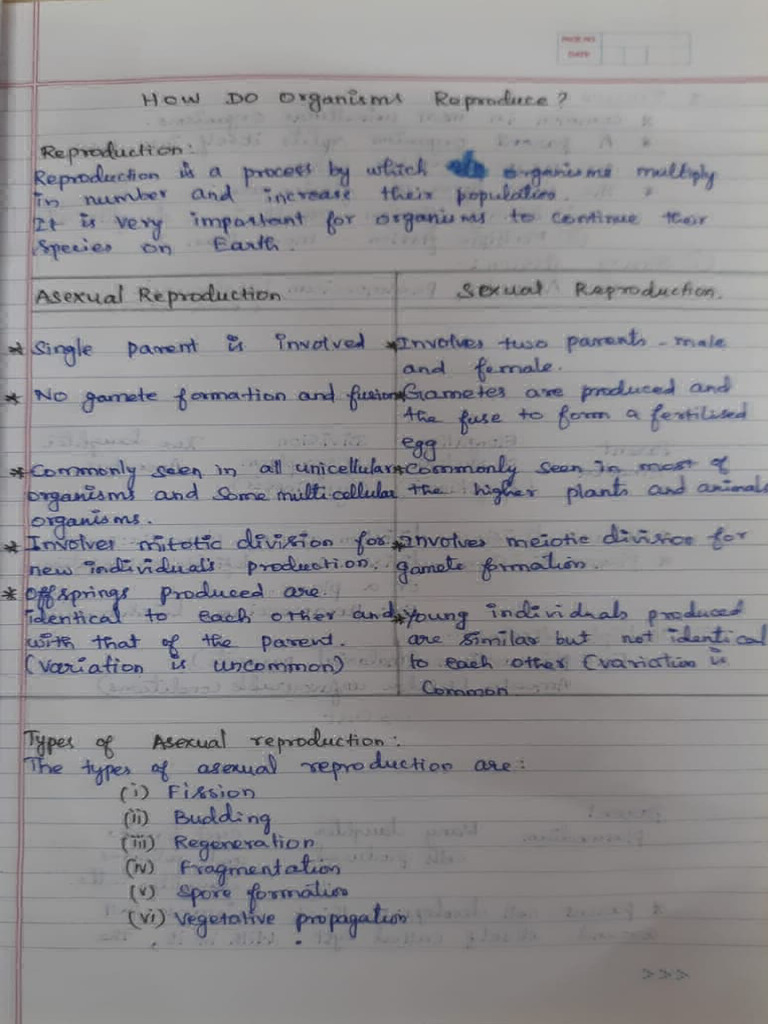 PAGE NO.
DATE
HOW DO ORGANISMS REPRODUCE?
Reproduction:
Reproduction is a process by which organisms multiply
in number and increase their population.
It is very important for organisms to continue their
species on Earth.
Asexual Reproduction
Sexual Reproduction.
* Single parent is involved
* Involves two parents - male
and female.
* No gamete formation and fusion
* Gametes are produced and
the fuse to form a fertilised
egg
* Commonly seen in all unicellular
organisms and some multicellular
organisms.
* Commonly seen in most of
the higher plants and animals
* Involves mitotic division for
new individual's production.
* Involves meiotic division for
gamete formation.
* Offsprings produced are.
identical to each other and
with that of the parent.
(variation is uncommon)
* Young individuals produced
are similar but not identical
to each other (variation is
Common
Types of Asexual reproduction:
The types of asexual reproduction are:
(i) Fission
(ii) Budding
(iii) Regeneration
(iv) Fragmentation
(v) Spore formation
(vi) Vegetative propagation
>>>